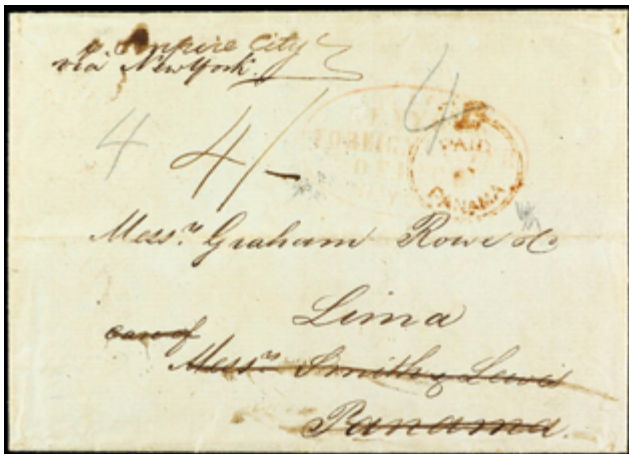 p. Empire City
via New York.
4
4
4/-
PAID
PANAMA
FOREIGN
Messrs. Graham Rowe & Co
Lima
care of
Messrs. Smith & Lewis
Panama.